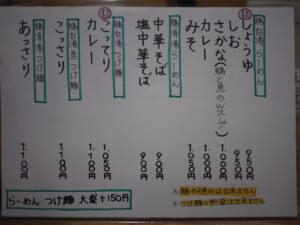 鶏白湯らーめん
しょうゆ 950円
しお 950円
さかな(鶏と魚のWスープ) 1.000円
カレー 1.000円
みそ 1.050円
鶏清湯らーめん
中華そば 900円
塩中華そば 900円
鶏白湯つけ麺
こってり 1.050円
カレー 1.100円
鶏白湯魚つけ麺
こっさり 1.100円
鶏清湯つけ麺
あっさり 1.100円
らーめん・つけ麺 大盛+150円
※ 麺の硬めは出来ません
※ つけ麺の熱盛は出来ません